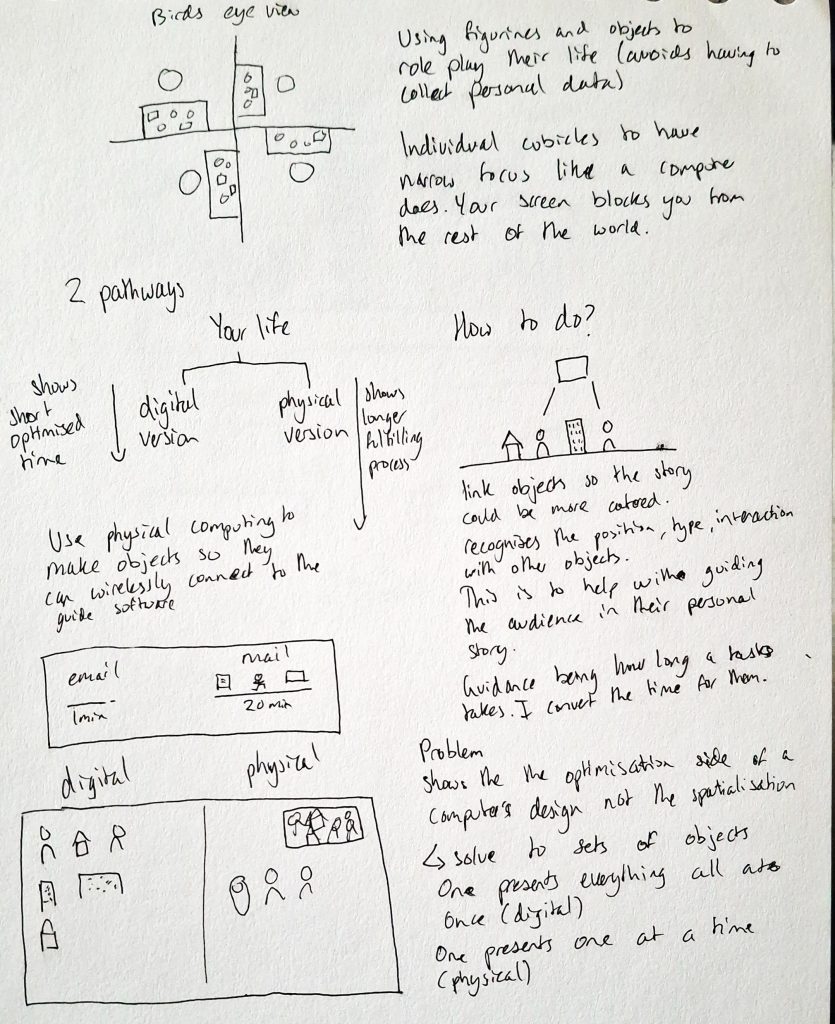 Birds eye view
Using figurines and objects to
role play their life (avoids having to
collect personal data)
Individual cubicles to have
narrow focus like a compute
does. Your screen blocks you from
the rest of the world.
2 pathways
Your life
shows
short
optimised
time
digital
version
physical
version
shows
longer
fulfilling
process
Use physical computing to
make objects so they
can wirelessly connect to the
guide software
How to do?
link objects so the story
could be more catored.
recognises the position, type, interaction
with other objects.
This is to help with guiding
the audience in their personal
story.
Guidance being how long a tasks
takes. I convert the time for them.
email
1min
mail
20 min
digital
physical
Problem
shows the the optimisation side of a
computer's design not the spatialisation
↳ solve to sets of objects
One presents everything all at
once (digital)
One presents one at a time
(physical)